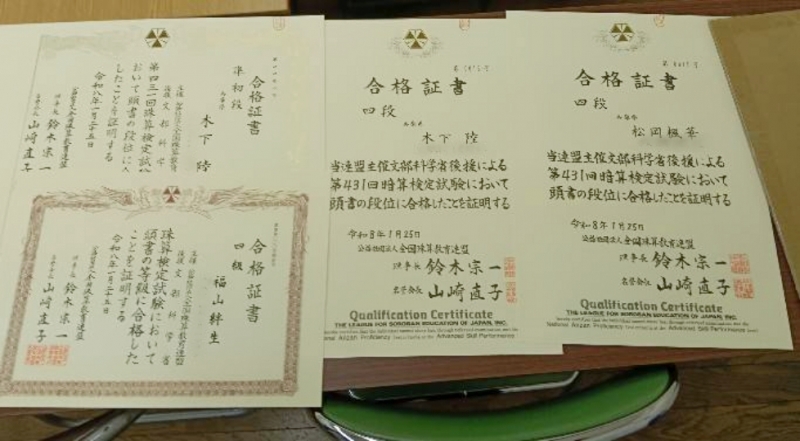 合格証書
準初段
木下 陸
第四三一回珠算検定試験に
おいて頭書の段位に合
したことを証明する
令和八年一月二十五日
理事長 鈴木宗一
名誉会長 山崎直子
合格証書
四級
福山絆生
主催 公益社団法人全国珠算教育連盟
後援 文部科学省
珠算検定試験において
頭書の等級に合格した
ことを証明する
令和八年一月二十五日
公益社団法人全国珠算教育連盟
理事長 鈴木宗一
名誉会長 山崎直子
合格証書
四段
木下 陸
当連盟主催文部科学省後援による
第431回暗算検定試験において
頭書の段位に合格したことを証明する
令和8年1月25日
公益社団法人全国珠算教育連盟
理事長 鈴木宗一
名誉会長 山崎直子
Qualification Certificate
THE LEAGUE FOR SOROBAN EDUCATION OF JAPAN, INC.
合格証書
四段
松岡楓華
当連盟主催文部科学省後援による
第431回暗算検定試験において
頭書の段位に合格したことを証明する
令和8年1月25日
公益社団法人全国珠算教育連盟
理事長 鈴木宗一
名誉会長 山崎直子
Qualification Certificate
THE LEAGUE FOR SOROBAN EDUCATION OF JAPAN, INC.